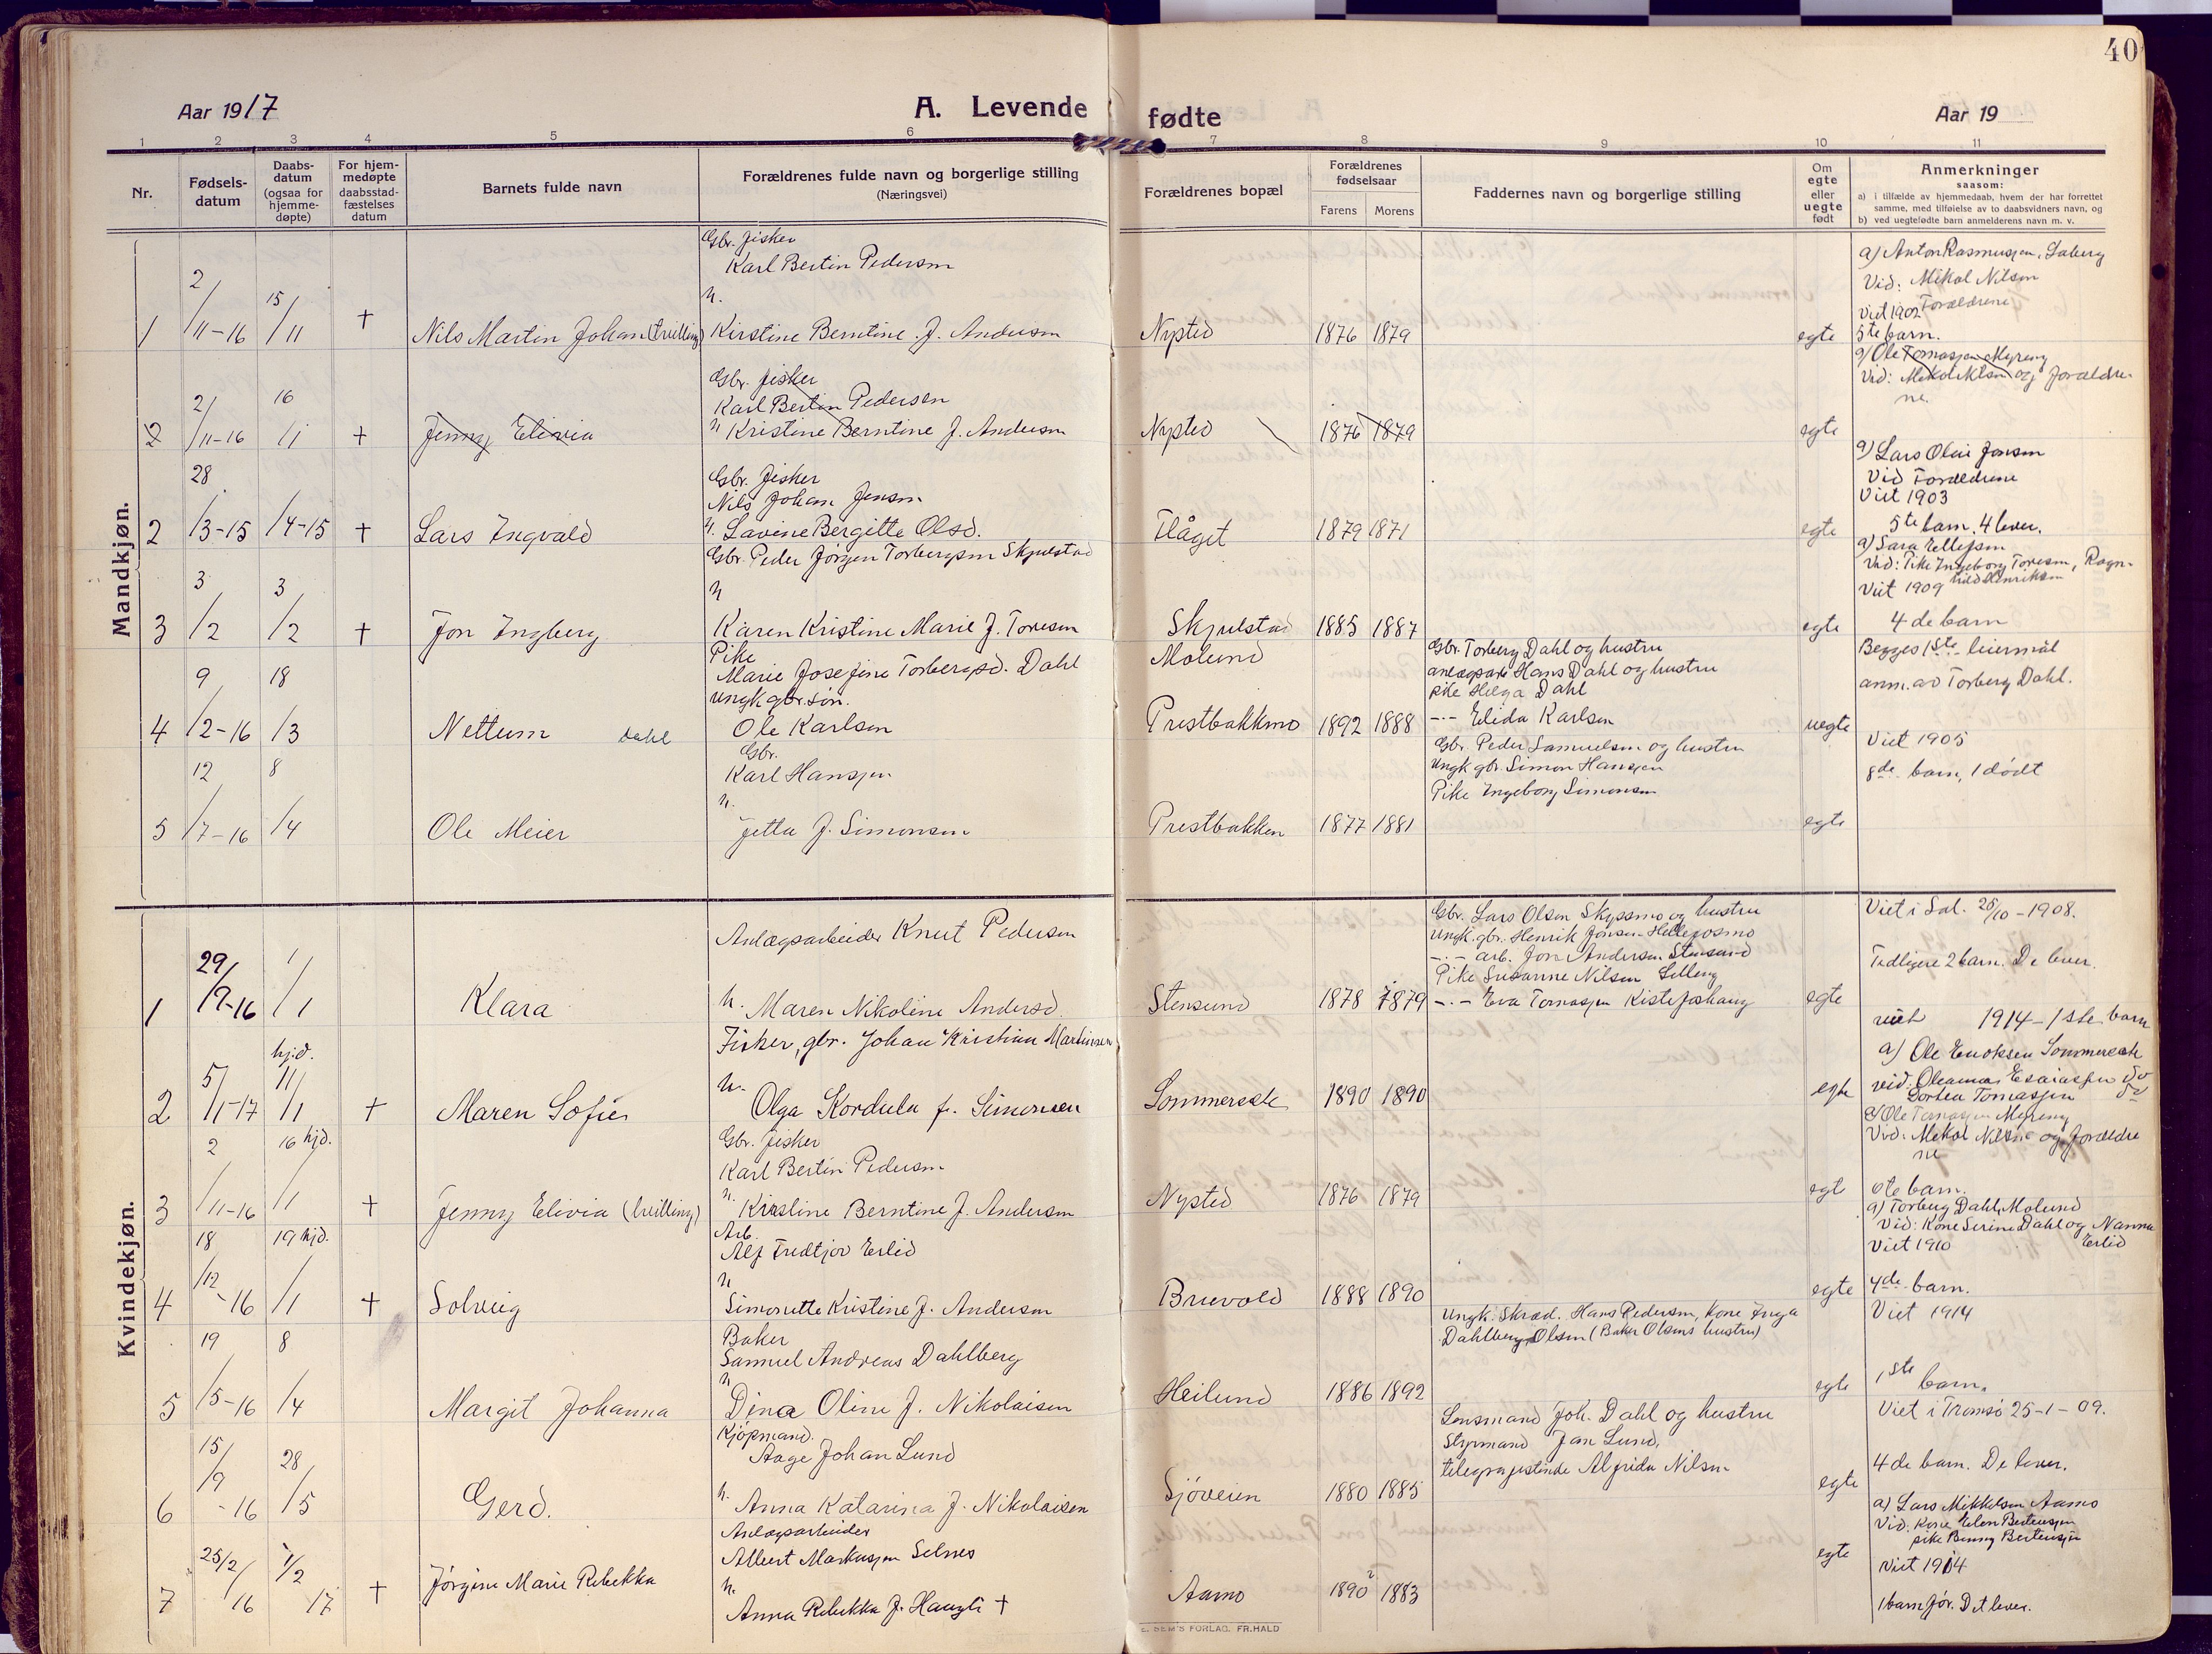 40
Aar 1917
A. Levende
fødte
Aar 19
1 2 3 4 5 6 7 8 9 10 11
Nr.
Fødsels-
datum
Daabs-
datum
(ogsaa for
hjemme-
døpte)
For hjem-
medøpte
daabsstad-
fæstelses
datum
Barnets fulde navn
Forældrenes fulde navn og borgerlige stilling
(Næringsvei)
Forældrenes bopæl
Forældrenes
fødselsaar
Farens Morens
Faddernes navn og borgerlige stilling
Om
egte
eller
uegte
født
Anmerkninger
saasom:
a) i tilfælde av hjemmedaab, hvem der har forrettet
samme, med tilføielse av to daabsvidners navn, og
b) ved uegtefødte barn anmelderens navn m. v.
Mandkjøn.
1 2/11-16 15/11 † Nils Martin Johan (tvilling)
Gbr. fisker
Karl Bertin Pedersen
h.
Kirstine Berntine f. Andersen
Nysted 1876 1879 egte
a) Anton Rasmussen,
Vid: Mikal Nilsen
Forældrene
Viet 1902
5te barn.
2 2/11-16 16/1 † Jenny Elivia
Gbr. fisker
Karl Bertin Pedersen
h Kristine Berntine f. Andersen
Nysted 1876 1879 egte
a) Ole Tomassen Myreng
Vid: Mikal Nilsen og foreldre-
ne.
2 28/3-15 /4-15 † Lars Ingvald
Gbr. fisker
Nils Johan Jensen
h. Lavine Bergitte Olsd.
Flåget 1879 1871 egte
a) Lars Olai Jensen
Vid Foreldrene
Viet 1903
5te barn. 4 lever.
3 3/2 3/2 † Jon Ingberg
Gbr. Peder Jørgen Torbergsen Skjrelstad
h
Karen Kristine Marie f. Toresen
1885 1887 egte
a) Sara Ellefsen
Vid: Pike Ingeborg Toresen, Ragn-
hild Henriksen
Viet 1909
4de barn
4 9/2-16 18/3 Nettum Dahl
Pike
Marie Josefine Torbergsd. Dahl
Ungk gbr. søn.
Ole Karlsen
Molund
Prestbakkmo 1892 1888
Gbr. Torberg Dahl og hustru
anlægsarb Hans Dahl og hustru
pike Helga Dahl
-"- Elida Karlsen
uegte
Begges 1ste leiermål
anm. av Torberg Dahl.
5 12/7-16 8/4 Ole Meier
Gbr.
Karl Hansen
h.
Jetta f. Simonsen
Prestbakken 1877 1881
Gbr. Peder Samuelsen og hustru
Ungk gbr. Simon Hansen
Pike Ingeborg Simonsen
egte
Viet 1905
8de barn, 1 dødt
Kvindekjøn.
1 29/9-16 1/1 Klara
Anlægsarbeider Knut Pedersen
h. Maren Nikoline Andersd.
Stensund 1878 1879
Gbr. Lars Olsen Skyssmo og hustru
Ungk. gbr. Henrik Jensen Hellefosmo
-"- arb. Jon Andersen Stensund
Pike Susanne Nilsen
-"- Eva Tomassen Kistefoshaug
egte
Viet i Sal. 25/10-1908.
Tidligere 2 barn. De lever.
2 5/1-17 hjd. 11/1 † Maren Sofie
Fisker, gbr. Johan Kristian Martinsen
h.
Olga Kordula f. Simonsen
Sommersete 1890 1890 egte
viet 1914 - 1ste barn
a) Ole Enoksen Sommersete
vid: Oleanna Esaiassen do
Dortea Tomassen do
3 2/11-16 16 hjd. /1 † Jenny Elivia (tvilling)
Gbr. fisker
Karl Bertin Pedersen
h. Kirstine Berntine f. Andersen
Nysted 1876 1879 egte
a) Ole Tomassen Myreng
Vid: Mikal Nilsen og foreldre
ne
6te barn.
4 18/12-16 19 hjd. /1 † Solveig
Arb.
Alf Fredtjov Erlid
h
Simonette Kristine f. Andersen
Bruvold 1888 1890 egte
a) Torberg Dahl, Molund
Vid: Kone Serine Dahl og Nanna
Erlid
Viet 1910
4de barn.
5 19/5-16 8/4 Margit Johanna
Baker
Samuel Andreas Dahlberg
h
Dina Oline f. Nikolaisen
Heilund 1886 1892
Ungk. Skræd. Hans Pedersen, Kone Inga
Dahlberg, Olsen (Baker Olsens hustru)
egte
Viet 1914
1ste barn.
6 15/9-16 28/5 Gerd.
Kjøpmand.
Aage Johan Lund
h. Anna Katarina f. Nikolaisen
Sjøveien 1880 1885
Lensmand Joh. Dahl og hustru
Styrmand Jan Lund,
telegrafistinde Alfrida Nilsen
egte
Viet i Tromsø 25-1-09.
4de barn. De lever.
7 25/2 16 1/2 17 † Jørgine Marie Rebekka
Anlægsarbeider
Albert Markussen Selnes
h.
Anna Rebekka f. Haugli †
Aamo 1890 1883 egte
a) Lars Mikkelsen Aamo
Vid: Kone Elen Bertensjen
pike Benny Bertensjen
Viet 1914
1 barn før. Det lever.
E. SEM'S FORLAG. FR.HALD